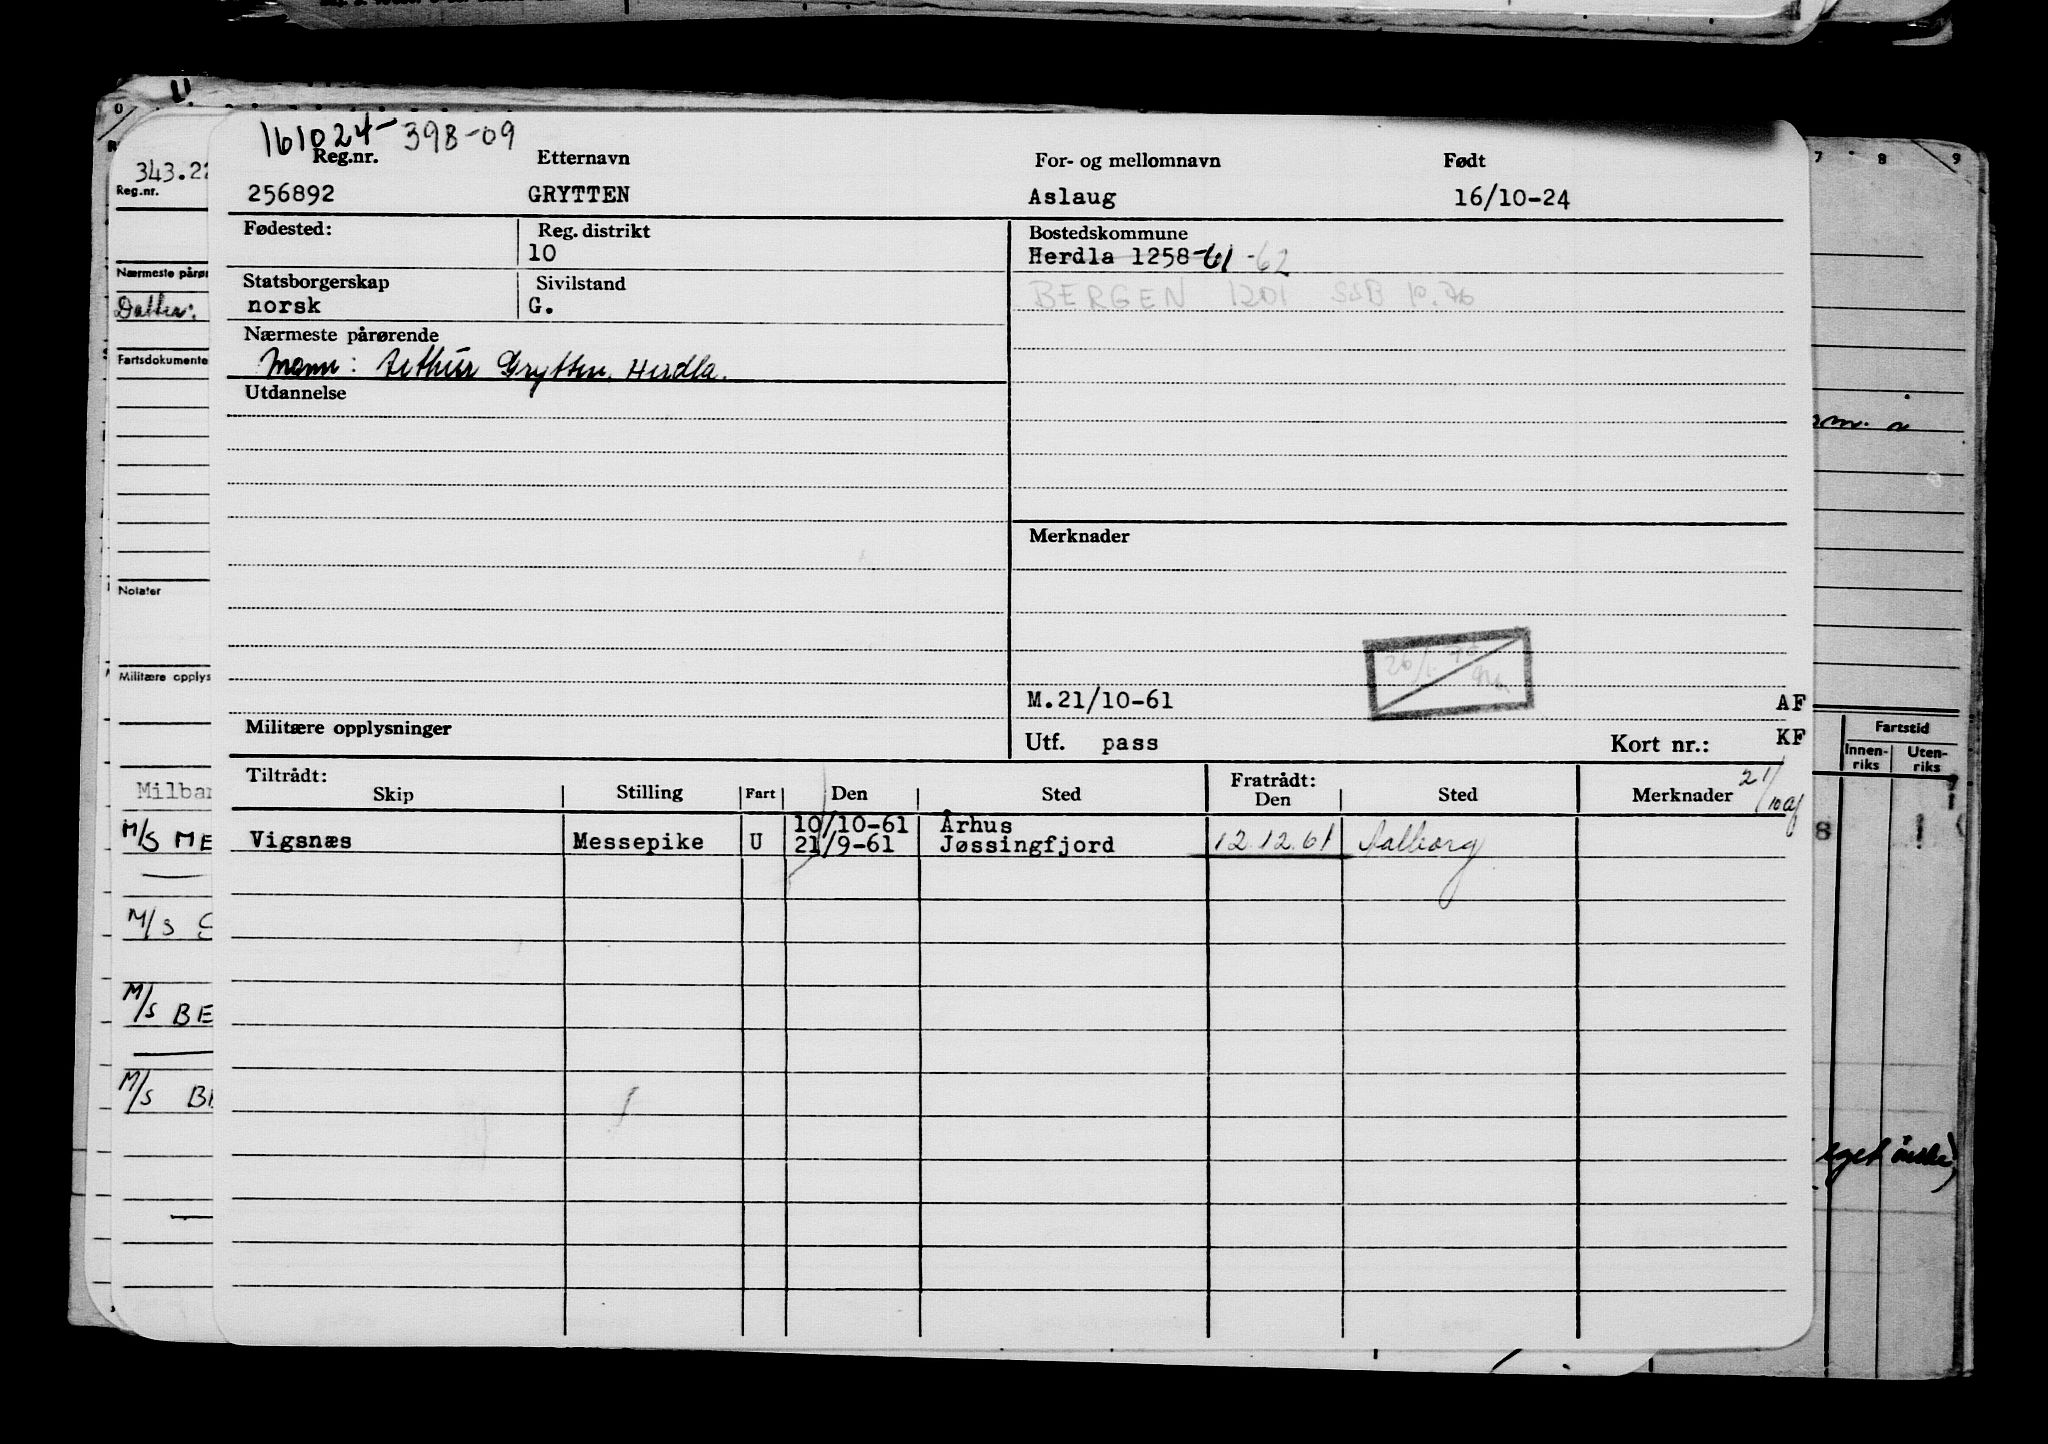 161024-398-09
Reg.nr. Etternavn For- og mellomnavn Født
256892 GRYTTEN Aslaug 16/10-24
Fødested: Reg. distrikt Bostedskommune
10 Herdla 1258-61 -62
Statsborgerskap Sivilstand BERGEN 1201 SSB 10.76
norsk G.
Nærmeste pårørende
Mann: Arthur Grytten, Herdla.
Utdannelse
Merknader
M.21/10-61 AF
Militære opplysninger Utf. pass Kort nr.: KF
Tiltrådt: Fratrådt: 21/10 af
Skip Stilling Fart Den Sted Den Sted Merknader
10/10-61 Århus
Vigsnæs Messepike U 21/9-61 Jøssingfjord 12.12.61 Aalborg
343.22
Reg.nr.
Nærmeste pårør
Datter:
Fartsdokumente
Notater
Militære opplys
Milbar
M/S ME
M/S
M/S BE
M/S BE
7 8 9
Fartstid
Innen- Uten-
riks riks
8 1
eget ønske)